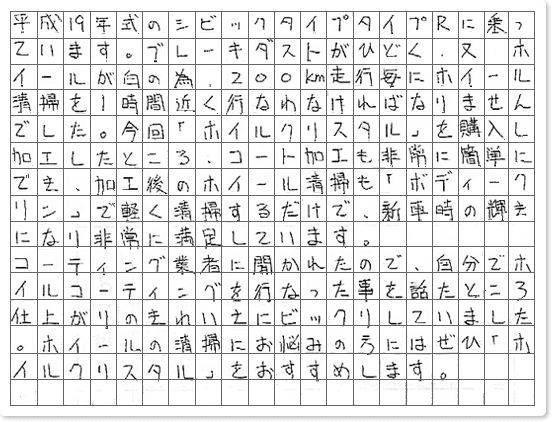 平成19年式のシビックタイプタイプRに乗っ
ています。ブレーキダストがひどく、又、ホ
イールが白の為、200km走行毎にホイール
清掃を1時間近く行なわなければなりません
でした。今回「ホイルクリスタル」を購入し
加工したところ、コート加工も非常に簡単に
でき、加工後のホイール清掃も「ボディーク
リン」で軽く清掃するだけで、新車時の輝き
になり非常に満足しています。
コーティング業者に聞かれたので、自分でホ
イルコーティングを行なった事を話たところ
仕上がりのきれいさにビックリしていました
。ホイールの清掃にお悩みの方にはぜひ「ホ
イルクリスタル」をおすすめします。